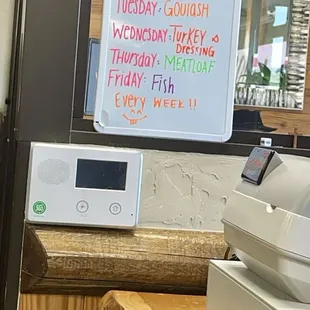 TUESDAY: GOULASH
WEDNESDAY: TURKEY &
DRESSING
THURSDAY: MEATLOAF
FRIDAY: FISH
EVERY WEEK!!